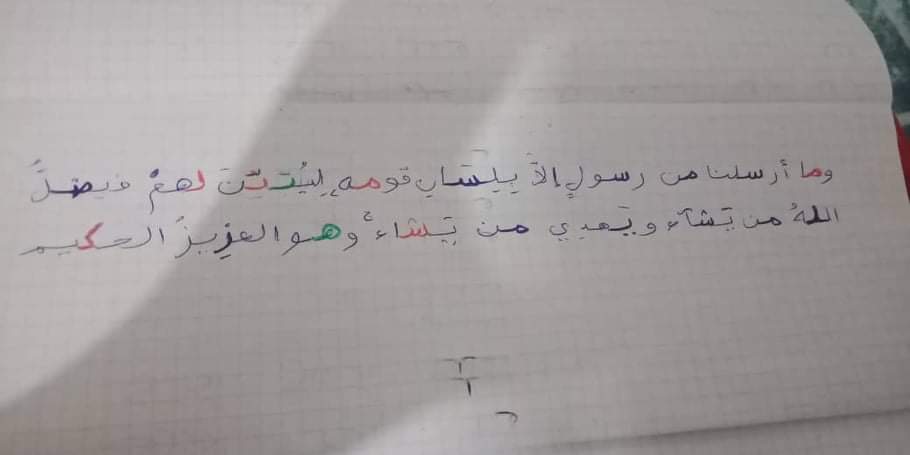 وما أرسلنا من رسولٍ إلاَّ بِلِسَانِ قومهِ لِيُبَيِّنَ لهمْ فيضلُّ
اللهُ من يَشآء ويَهدي من يَشاءُ وهو العزيزُ الحكيم